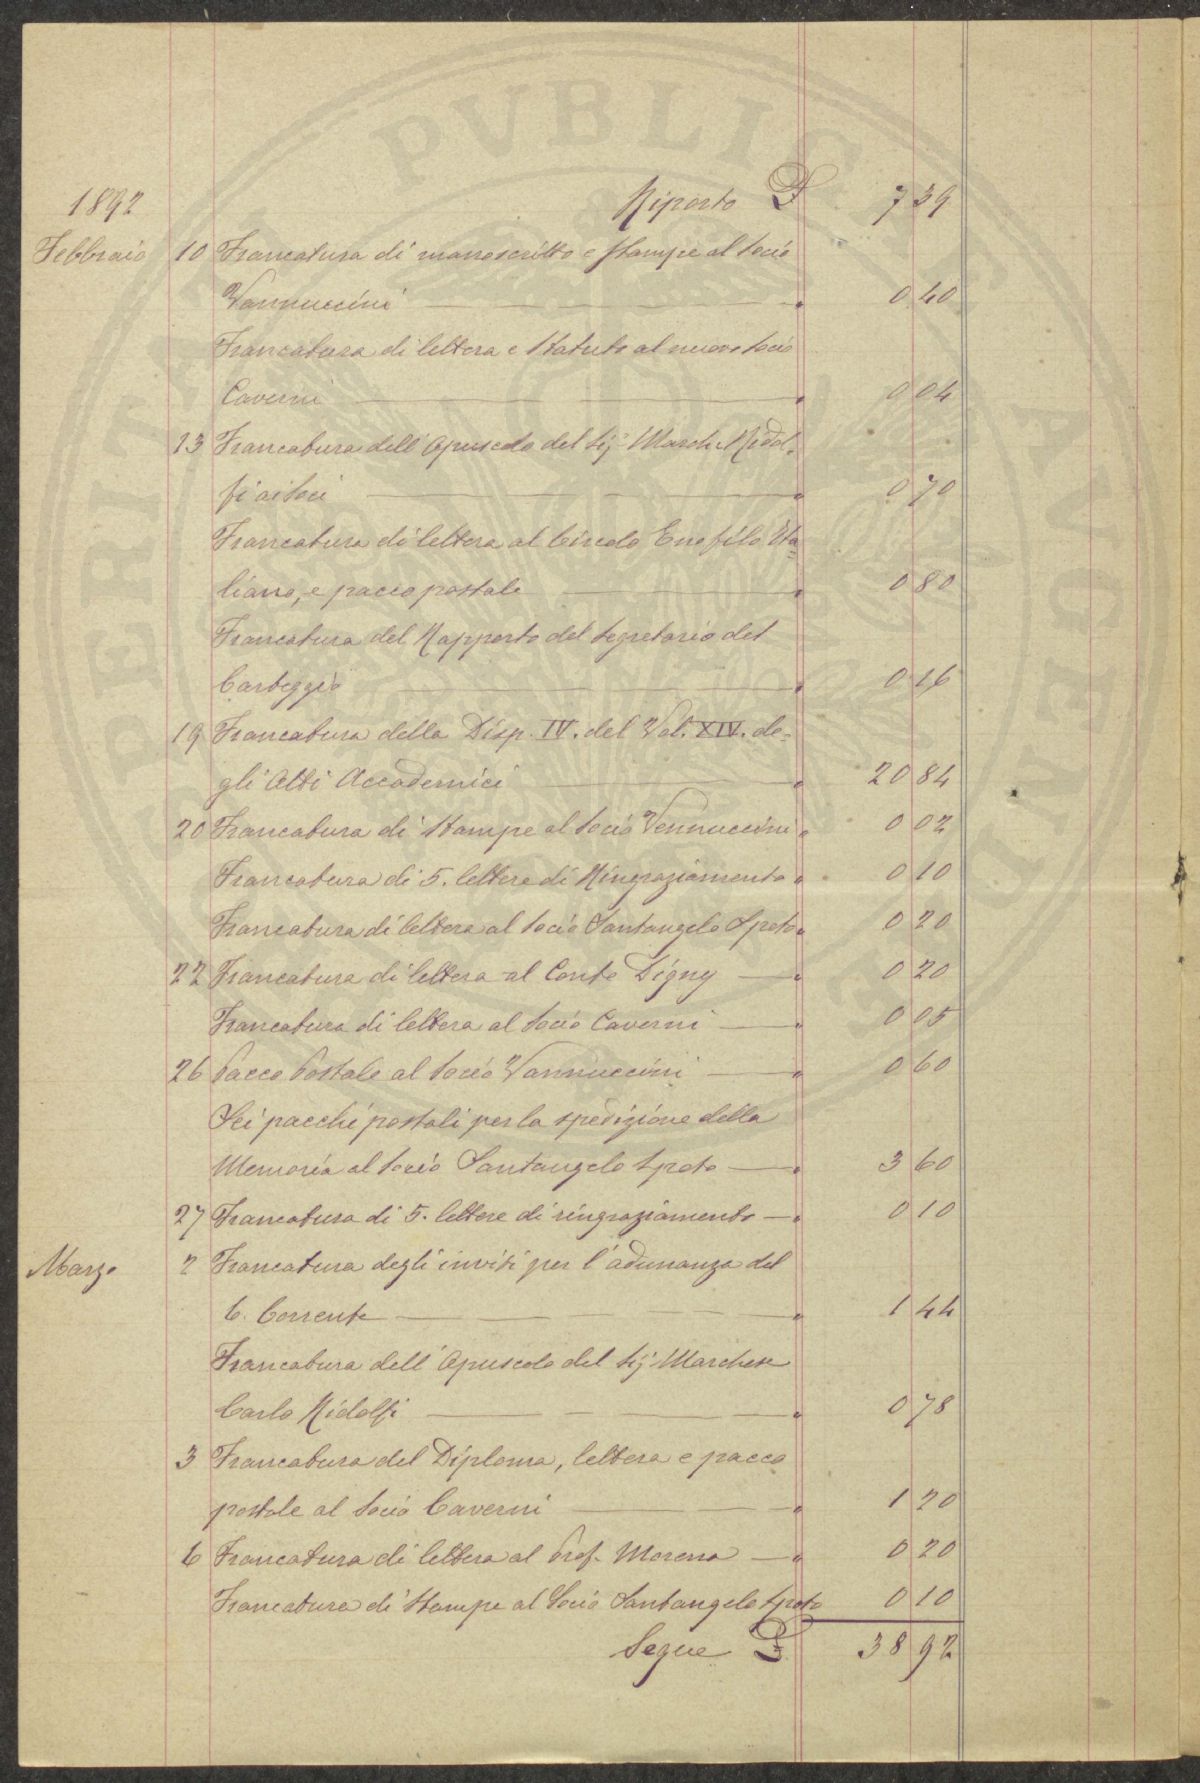 PVBLIC
1892 Riporto £ 7 39
Febbraio 10 Francatura di manoscritto e stampe al Socio
Vannuccini — " 0 40
Francatura di lettera e Statuto al nuovo Socio
Caverni — " 0 04
13 Francatura dell'Opuscolo del Sig. March. Ridol-
fi ai Soci — " 0 70
Francatura di lettera al Circolo Enofilo Ita=
liano, e pacco postale — " 0 80
Francatura del Rapporto del Segretario del
Carteggio — " 0 16
19 Francatura della Disp. IV. del Vol. XIV. de=
gli Atti Accademici — " 20 84
20 Francatura di Stampe al Socio Vennuccini " 0 02
Francatura di 5. lettere di Ringraziamento " 0 10
Francatura di lettera al Socio Santangelo Spoto " 0 20
22 Francatura di lettera al Conte Digny — " 0 20
Francatura di lettera al Socio Caverni — " 0 05
26 Pacco Postale al Socio Vannuccini — " 0 60
Sei pacchi postali per la spedizione della
Memoria al Socio Santangelo Spoto — " 3 60
27 Francatura di 5. lettere di ringraziamento — " 0 10
Marzo 2 Francatura degli inviti per l'adunanza del
6. Corrente — " 1 44
Francatura dell'Opuscolo del Sig. Marchese
Carlo Ridolfi — " 0 78
3 Francatura del Diploma, lettera e pacco
postale al Socio Caverni — " 1 20
6 Francatura di lettera al Prof. Morena — " 0 20
Francatura di Stampe al Socio Santangelo Spoto 0 10
Segue £ 38 92